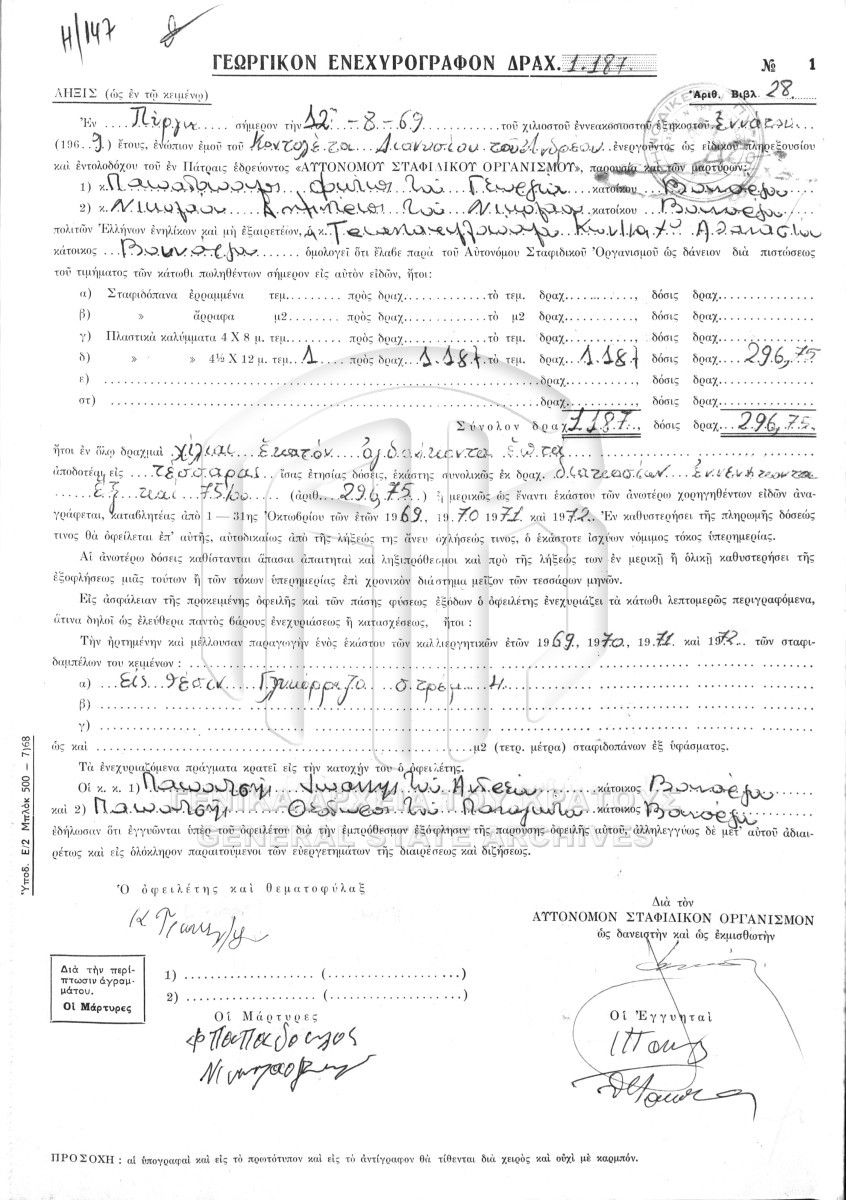 Η/147
ΓΕΩΡΓΙΚΟΝ ΕΝΕΧΥΡΟΓΡΑΦΟΝ ΔΡΑΧ. 1.187.
№ 1
ΛΗΞΙΣ (ὡς ἐν τῷ κειμένῳ)
Ἀριθ. Βιβλ. 28
Ἐν Πύργῳ σήμερον τὴν 12 - 8 - 69 τοῦ χιλιοστοῦ ἐννεακοσιοστοῦ ἑξηκοστοῦ Ἐννάτου
(1969) ἔτους, ἐνώπιον ἐμοῦ τοῦ Διονυσίου τοῦ Ἀνδρέου ἐνεργοῦντος ὡς εἰδικοῦ πληρεξουσίου
καὶ ἐντολοδόχου τοῦ ἐν Πάτραις ἑδρεύοντος «ΑΥΤΟΝΟΜΟΥ ΣΤΑΦΙΔΙΚΟΥ ΟΡΓΑΝΙΣΜΟΥ», παρουσίᾳ καὶ τῶν μαρτύρων:
1) κ. τοῦ Γεωργίου κατοίκου
2) κ. Νικολάου Δημήτριος τοῦ Νικολάου κατοίκου
πολιτῶν Ἑλλήνων ἐνηλίκων καὶ μὴ ἐξαιρετέων, ὁ κ. Ἀθανασίου
κάτοικος ὁμολογεῖ ὅτι ἔλαβε παρὰ τοῦ Αὐτονόμου Σταφιδικοῦ Ὀργανισμοῦ ὡς δάνειον διὰ πιστώσεως
τοῦ τιμήματος τῶν κάτωθι πωληθέντων σήμερον εἰς αὐτὸν εἰδῶν, ἤτοι:
α) Σταφιδόπανα ἐρραμμένα τεμ. πρὸς δραχ. τὸ τεμ. δραχ. , δόσις δραχ.
β) » ἄρραφα μ2 πρὸς δραχ. τὸ μ2 δραχ. , δόσις δραχ.
γ) Πλαστικὰ καλύμματα 4 Χ 8 μ. τεμ. πρὸς δραχ. τὸ τεμ. δραχ. , δόσις δραχ.
δ) » » 4½ Χ 12 μ. τεμ. 1 πρὸς δραχ. 1.187 τὸ τεμ. δραχ. 1.187 δόσις δραχ. 296,75
ε) δραχ. , δόσις δραχ.
στ) δραχ. , δόσις δραχ.
Σύνολον δραχ. 1.187. , δόσις δραχ. 296,75.
ἤτοι ἐν ὅλῳ δραχμαὶ χίλιαι ἑκατὸν ὀγδοήκοντα ἑπτὰ
ἀποδοτέαι εἰς τέσσαρας ἴσας ἐτησίας δόσεις, ἑκάστης συνολικῶς ἐκ δραχ. διακοσίων ἐνενήκοντα
ἓξ καὶ 75/00 (ἀριθ. 296,75) ἢ μερικῶς ὡς ἔναντι ἑκάστου τῶν ἀνωτέρω χορηγηθέντων εἰδῶν ἀνα-
γράφεται, καταβλητέας ἀπὸ 1 — 31ης Ὀκτωβρίου τῶν ἐτῶν 1969, 1970 1971 καὶ 1972. Ἐν καθυστερήσει τῆς πληρωμῆς δόσεώς
τινος θὰ ὀφείλεται ἐπ' αὐτῆς, αὐτοδικαίως ἀπὸ τῆς λήξεώς της ἄνευ ὀχλήσεώς τινος, ὁ ἑκάστοτε ἰσχύων νόμιμος τόκος ὑπερημερίας.
Αἱ ἀνωτέρω δόσεις καθίστανται ἅπασαι ἀπαιτηταὶ καὶ ληξιπρόθεσμοι καὶ πρὸ τῆς λήξεώς των ἐν μερικῇ ἢ ὁλικῇ καθυστερήσει τῆς
ἐξοφλήσεως μιᾶς τούτων ἢ τῶν τόκων ὑπερημερίας ἐπὶ χρονικὸν διάστημα μεῖζον τῶν τεσσάρων μηνῶν.
Εἰς ἀσφάλειαν τῆς προκειμένης ὀφειλῆς καὶ τῶν πάσης φύσεως ἐξόδων ὁ ὀφειλέτης ἐνεχυριάζει τὰ κάτωθι λεπτομερῶς περιγραφόμενα,
ἅτινα δηλοῖ ὡς ἐλεύθερα παντὸς βάρους ἐνεχυριάσεως ἢ κατασχέσεως, ἤτοι :
Τὴν ἠρτημένην καὶ μέλλουσαν παραγωγὴν ἑνὸς ἑκάστου τῶν καλλιεργητικῶν ἐτῶν 1969, 1970, 1971 καὶ 1972 τῶν σταφι-
δαμπέλων του κειμένων :
α) Εἰς θέσιν στρεμ. 4.
β)
γ)
ὡς καὶ μ2 (τετρ. μέτρα) σταφιδοπάνων ἐξ ὑφάσματος.
Τὰ ἐνεχυριαζόμενα πράγματα κρατεῖ εἰς τὴν κατοχήν του ὁ ὀφειλέτης.
Οἱ κ. κ. 1) Ἰωάννης τοῦ Ἀνδρέα κάτοικος
καὶ 2) Θεόδωρος τοῦ Παναγιώτη κάτοικος
ἐδήλωσαν ὅτι ἐγγυῶνται ὑπὲρ τοῦ ὀφειλέτου διὰ τὴν ἐμπρόθεσμον ἐξόφλησιν τῆς παρούσης ὀφειλῆς αὐτοῦ, ἀλληλεγγύως δὲ μετ' αὐτοῦ ἀδιαι-
ρέτως καὶ εἰς ὁλόκληρον παραιτούμενοι τῶν εὐεργετημάτων τῆς διαιρέσεως καὶ διζήσεως.
ΓΕΝΙΚΑ ΑΡΧΕΙΑ ΤΟΥ ΚΡΑΤΟΥΣ
GENERAL STATE ARCHIVES
Ὑποδ. Ε/2 Μπλὸκ 500 — 7)68
Ὁ ὀφειλέτης καὶ θεματοφύλαξ
Διὰ τὸν
ΑΥΤΟΝΟΜΟΝ ΣΤΑΦΙΔΙΚΟΝ ΟΡΓΑΝΙΣΜΟΝ
ὡς δανειστὴν καὶ ὡς ἐκμισθωτὴν
Διὰ τὴν περί-
πτωσιν ἀγραμ-
μάτου.
Οἱ Μάρτυρες
1) ( )
2) ( )
Οἱ Μάρτυρες
Οἱ Ἐγγυηταὶ
ΠΡΟΣΟΧΗ : αἱ ὑπογραφαὶ καὶ εἰς τὸ πρωτότυπον καὶ εἰς τὸ ἀντίγραφον θὰ τίθενται διὰ χειρὸς καὶ οὐχὶ μὲ καρμπόν.